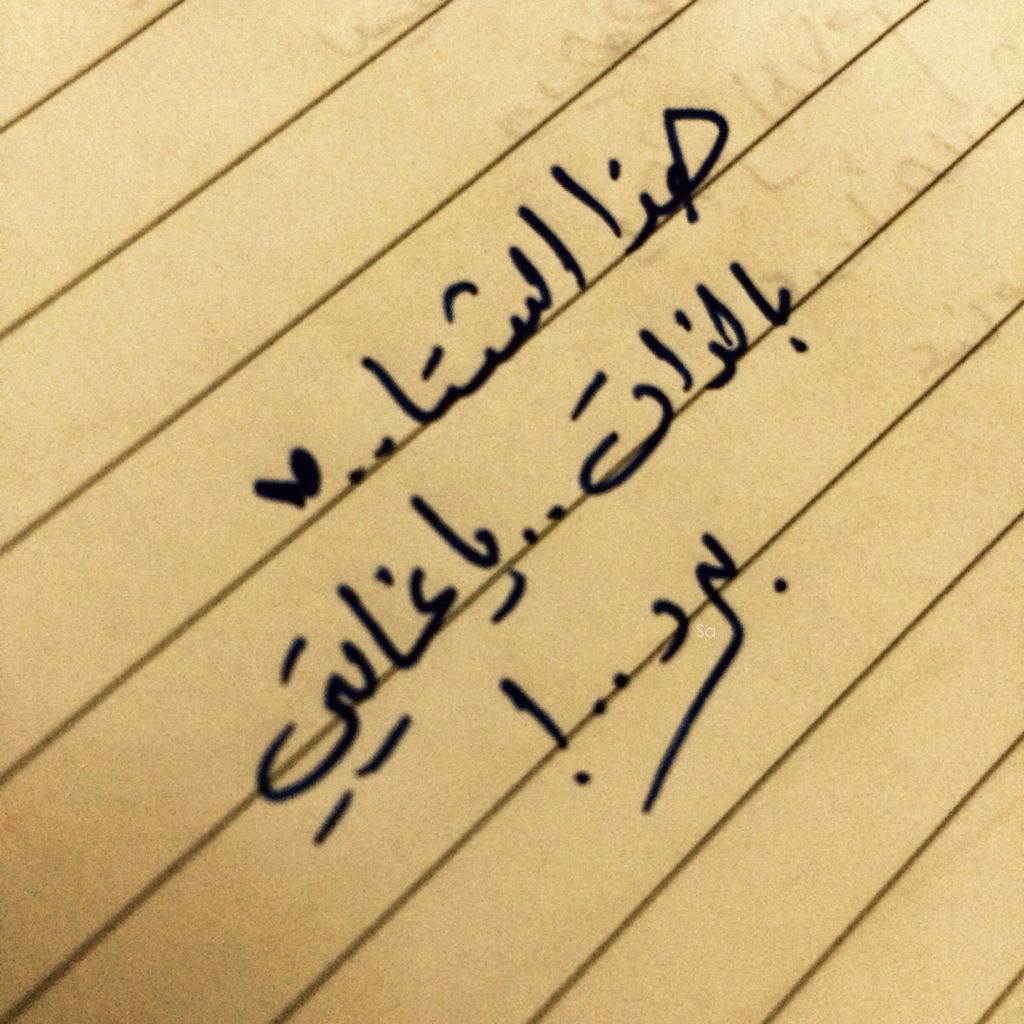 هذا الشتا.. ♥
بالذات.. يا غاليتي
برد..!
Sa